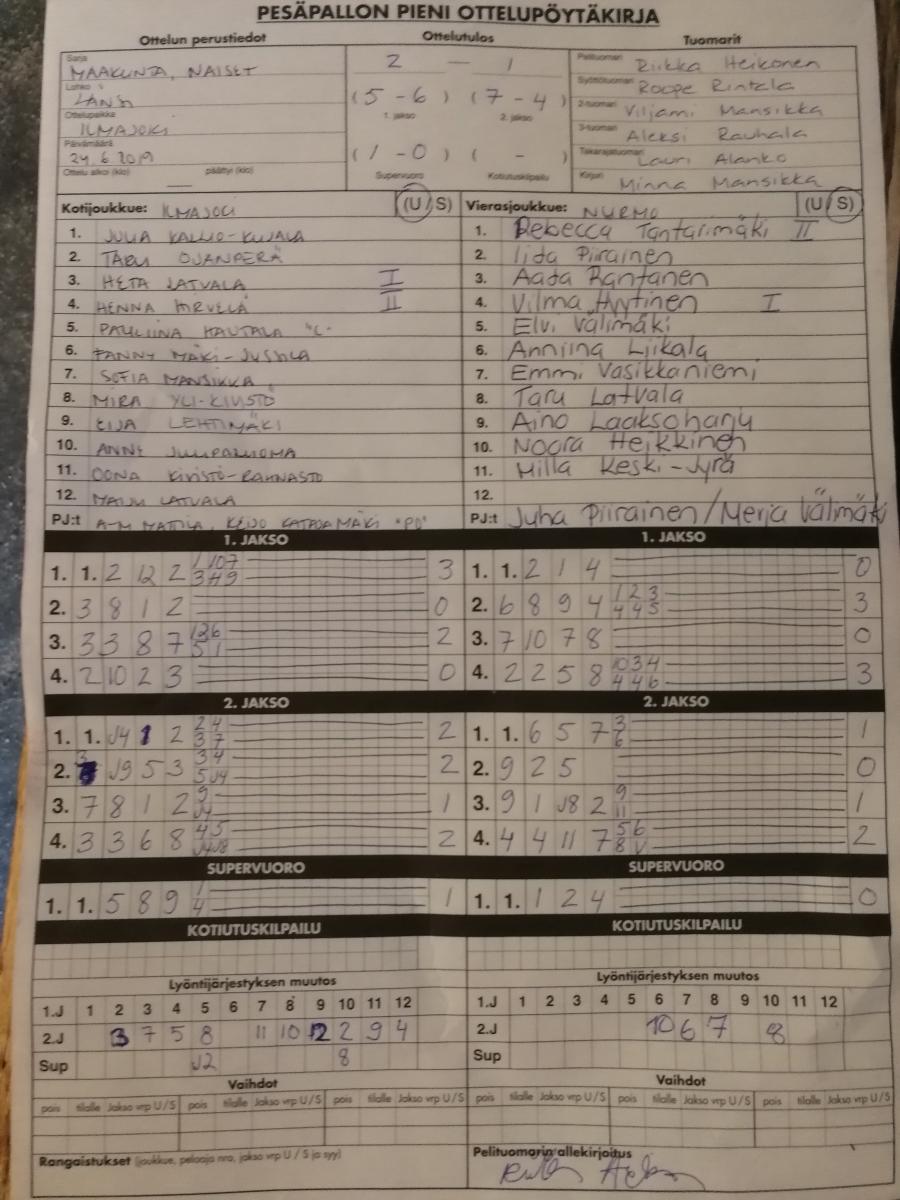 PESÄPALLON PIENI OTTELUPÖYTÄKIRJA
Ottelun perustiedot Ottelutulos Tuomarit
Sarja MAAKUNTA, NAISET 2 — 1 Pelituomari Riikka Heikonen
Lohko LÄNSI (5 - 6) (7 - 4) Syöttötuomari Roope Rintala
Ottelupaikka ILMAJOKI 1. jakso 2. jakso 2-tuomari Viljami Mansikka
Päivämäärä 24.6.2019 (1 - 0) ( - ) 3-tuomari Aleksi Rauhala
Ottelu alkoi (klo) päättyi (klo) Supervuoro Kotiutuskilpailu Takarajatuomari Lauri Alanko
Kirjuri Minna Mansikka
Kotijoukkue: ILMAJOKI (U/S) Vierasjoukkue: NURMO (U/S)
1. JULIA KALLIO-KUJALA 1. Rebecca Tantarimäki II
2. TARU OJANPERÄ 2. Iida Piirainen
3. HETA LATVALA I 3. Aada Rantanen
4. HENNA HIRVELÄ II 4. Vilma Hyytinen I
5. PAULIINA HAUTALA "L" 5. Elvi Välimäki
6. FANNY MÄKI-JUSSILA 6. Anniina Liikala
7. SOFIA MANSIKKA 7. Emmi Vasikkaniemi
8. MIRA YLI-KIVISTÖ 8. Taru Latvala
9. EIJA LEHTIMÄKI 9. Aino Laaksoharju
10. ANNE 10. Noora Heikkinen
11. OONA KIVISTÖ-RAHNASTO 11. Milla Keski-Jyrä
12. MAIJU LATVALA 12.
PJ:t A-M MATTILA, KEIJO KATAJAMÄKI "PO" PJ:t Juha Piirainen/Merja Välimäki
1. JAKSO 1. JAKSO
1. 1. 2 12 2 3 1. 1. 2 1 4 0
2. 3 8 1 2 0 2. 6 8 9 4 1 2 3 4 4 5 3
3. 3 3 8 7 2 3. 7 10 7 8 0
4. 2 10 2 3 0 4. 2 2 5 8 10 3 4 4 4 6 3
2. JAKSO 2. JAKSO
1. 1. J4 1 2 2 4 3 7 2 1. 1. 6 5 7 3 6 1
2. 3 J9 5 3 3 4 5 J4 2 2. 9 2 5 0
3. 7 8 1 2 9 J4 1 3. 9 1 J8 2 9 11 1
4. 3 3 6 8 4 5 J4 J8 2 4. 4 4 11 7 5 6 8 V 2
SUPERVUORO SUPERVUORO
1. 1. 5 8 9 1 4 1 1. 1. 1 2 4 0
KOTIUTUSKILPAILU KOTIUTUSKILPAILU
Lyöntijärjestyksen muutos Lyöntijärjestyksen muutos
1.J 1 2 3 4 5 6 7 8 9 10 11 12 1.J 1 2 3 4 5 6 7 8 9 10 11 12
2.J 3 7 5 8 11 10 12 2 9 4 2.J 10 6 7 8
Sup J2 8 Sup
Vaihdot Vaihdot
pois tilalle Jakso vrp U/S pois tilalle Jakso vrp U/S pois tilalle Jakso vrp U/S pois tilalle Jakso vrp U/S pois tilalle Jakso vrp U/S pois tilalle Jakso vrp U/S
Rangaistukset (joukkue, pelaaja nro, jakso vrp U / S ja syy) Pelituomarin allekirjoitus